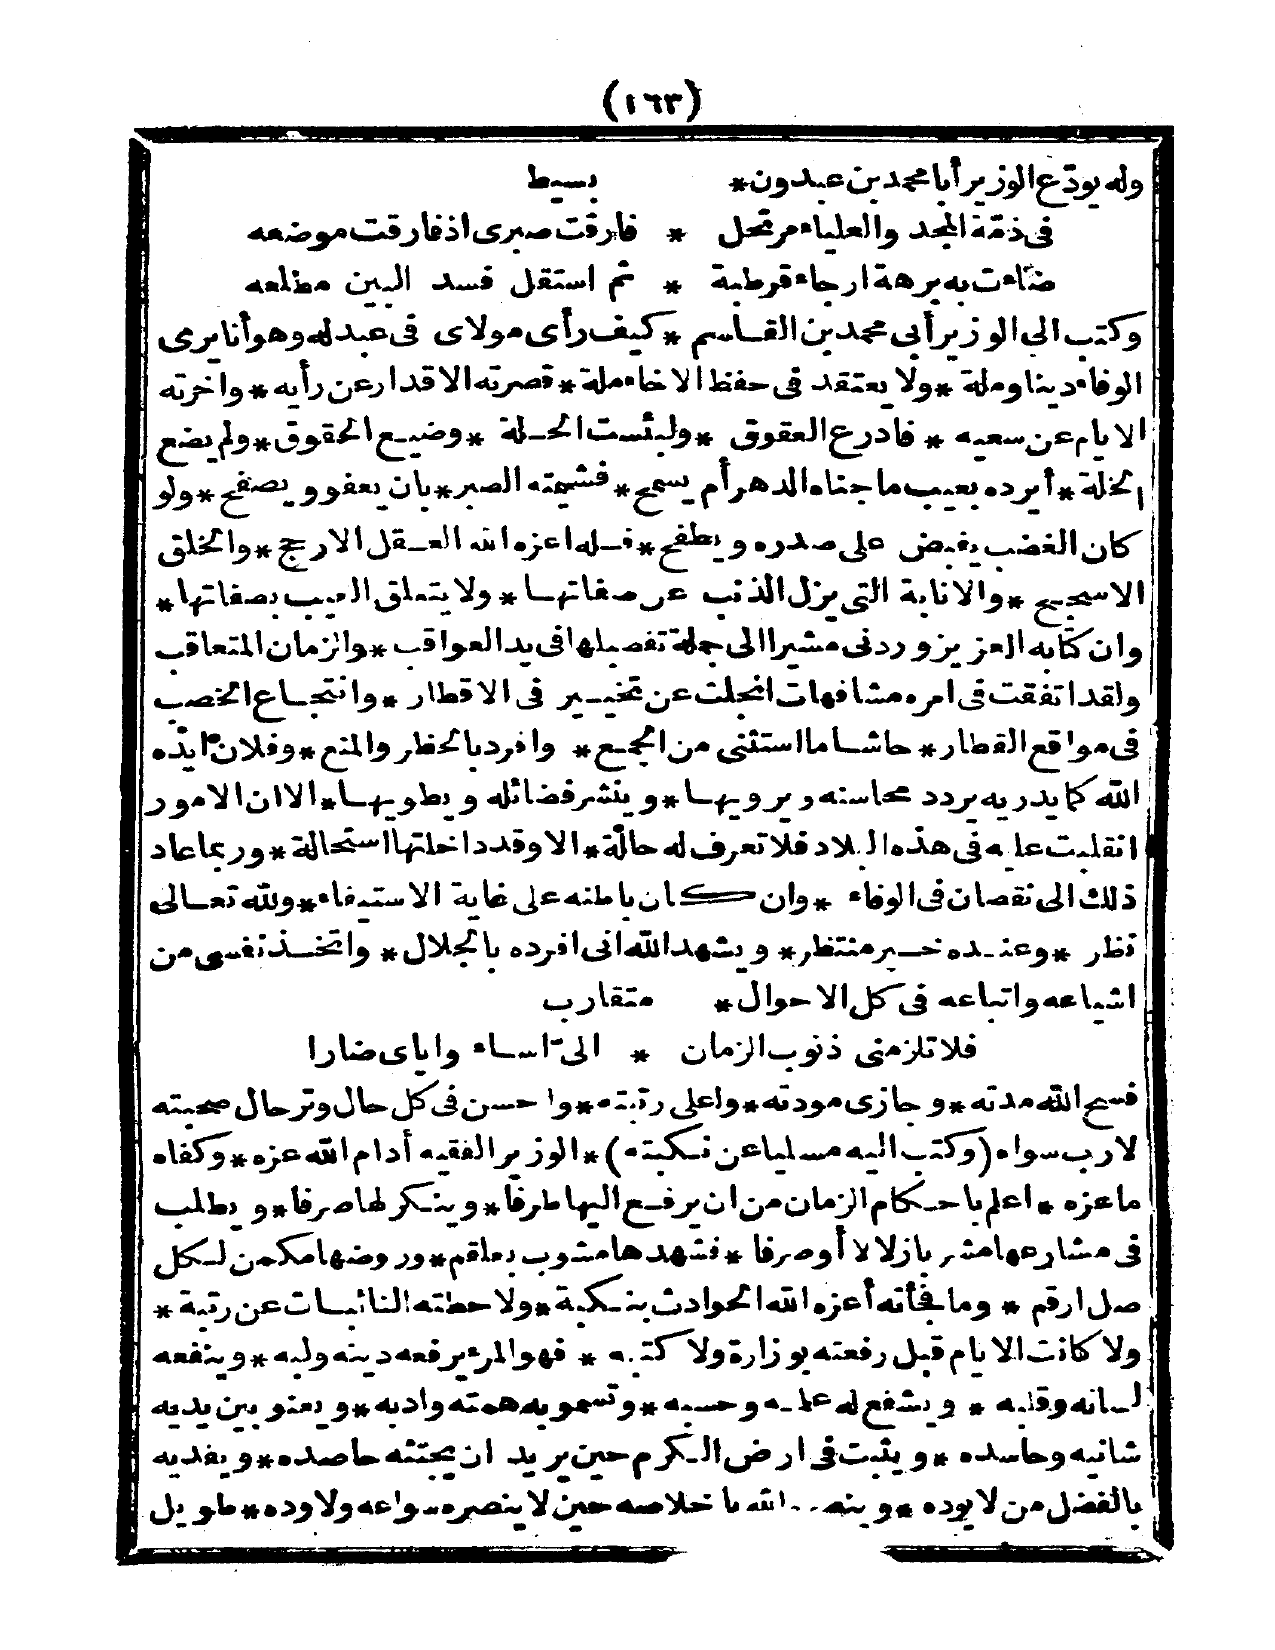 (١٦٣)
وله يودّع الوزير أبا محمد بن عبدون* بسيط
فى ذمّة المجد والعلياء مرتحل * فارقت صبرى اذ فارقت موضعه
ضاءت به برهة ارجاء قرطبة * ثم استقل فسد البين مطلعه
وكتب الى الوزير أبى محمد بن القاسم * كيف رأى مولاى فى عبد له وهو أنا يرى
الوفاء دينا وملة * ولا يعتقد فى حفظ الاخاء ملة * قصرته الاقدار عن رأيه * واخرته
الايام عن سعيه * فادرع العقوق * ولبئست الحلة * وضيع الحقوق * ولم يضع
الخلة * أيرده بعيب ما جناه الدهر أم يسمح * فشيمته الصبر * بان يعفو ويصفح * ولو
كان الغضب يفيض على صدره ويطفح * فله اعزه الله العقل الارجح * والخلق
الاسجح * والانابة التى يزل الذنب عن صفاتها * ولا يتعلق العيب بصفاتها *
وان كتابه العزيز وردنى مشيرا الى جملة تفصيلها فى يد العواقب * والزمان المتعاقب
ولقد اتفقت فى امره مشافهات انجلت عن تخيير فى الاقطار * وانتجاع الخصب
فى مواقع القطار * حاشا ما استثنى من الجمع * وافرد بالحظر والمنع * وفلان ايّده
الله كما يدريه يردد محاسنه ويرويها * وينشر فضائله ويطويها * الا ان الامور
انقلبت عليه فى هذه البلاد فلا تعرف له حالة * الا وقد داخلتها استحالة * وربما عاد
ذلك الى نقصان فى الوفاء * وان كان باطنه على غاية الاستيفاء * ولله تعالى
نظر * وعنده خير منتظر * ويشهد الله انى افرده بالجلال * واتخذ نفسى من
اشياعه واتباعه فى كل الاحوال * متقارب
فلا تلزمنى ذنوب الزمان * الىّ اساء واياى ضارا
فسح الله مدته * وجازى مودته * واعلى رتبته * واحسن فى كل حال وترحال صحبته
لا رب سواه (وكتب اليه مسليا عن نكبته) * الوزير الفقيه أدام الله عزه * وكفاه
ما عزه * اعلم باحكام الزمان من ان يرفع اليها طرفا * وينكر لها صرفا * ويطلب
فى مشارعها مشربا زلالا أو صرفا * فشهدها مشوب بعلقم * وروضها مكمن لكل
صل ارقم * وما فجأته أعزه الله الحوادث بنكبة * ولا حطته النائبات عن رتبة *
ولا كانت الايام قبل رفعته بوزارة ولا كتبه * فهو المرء يرفعه دينه ولبه * وينفعه
لسانه وقلبه * ويشفع له علمه وحسبه * وتسمو به همته وادبه * ويعنو بين يديه
شانيه وحاسده * ويثبت فى ارض الكرم حين يريد ان يجتثه حاصده * ويفديه
بالفضل من لا يوده * وينصره الله باخلاصه حين لا ينصره سواعه ولا وده * طويل